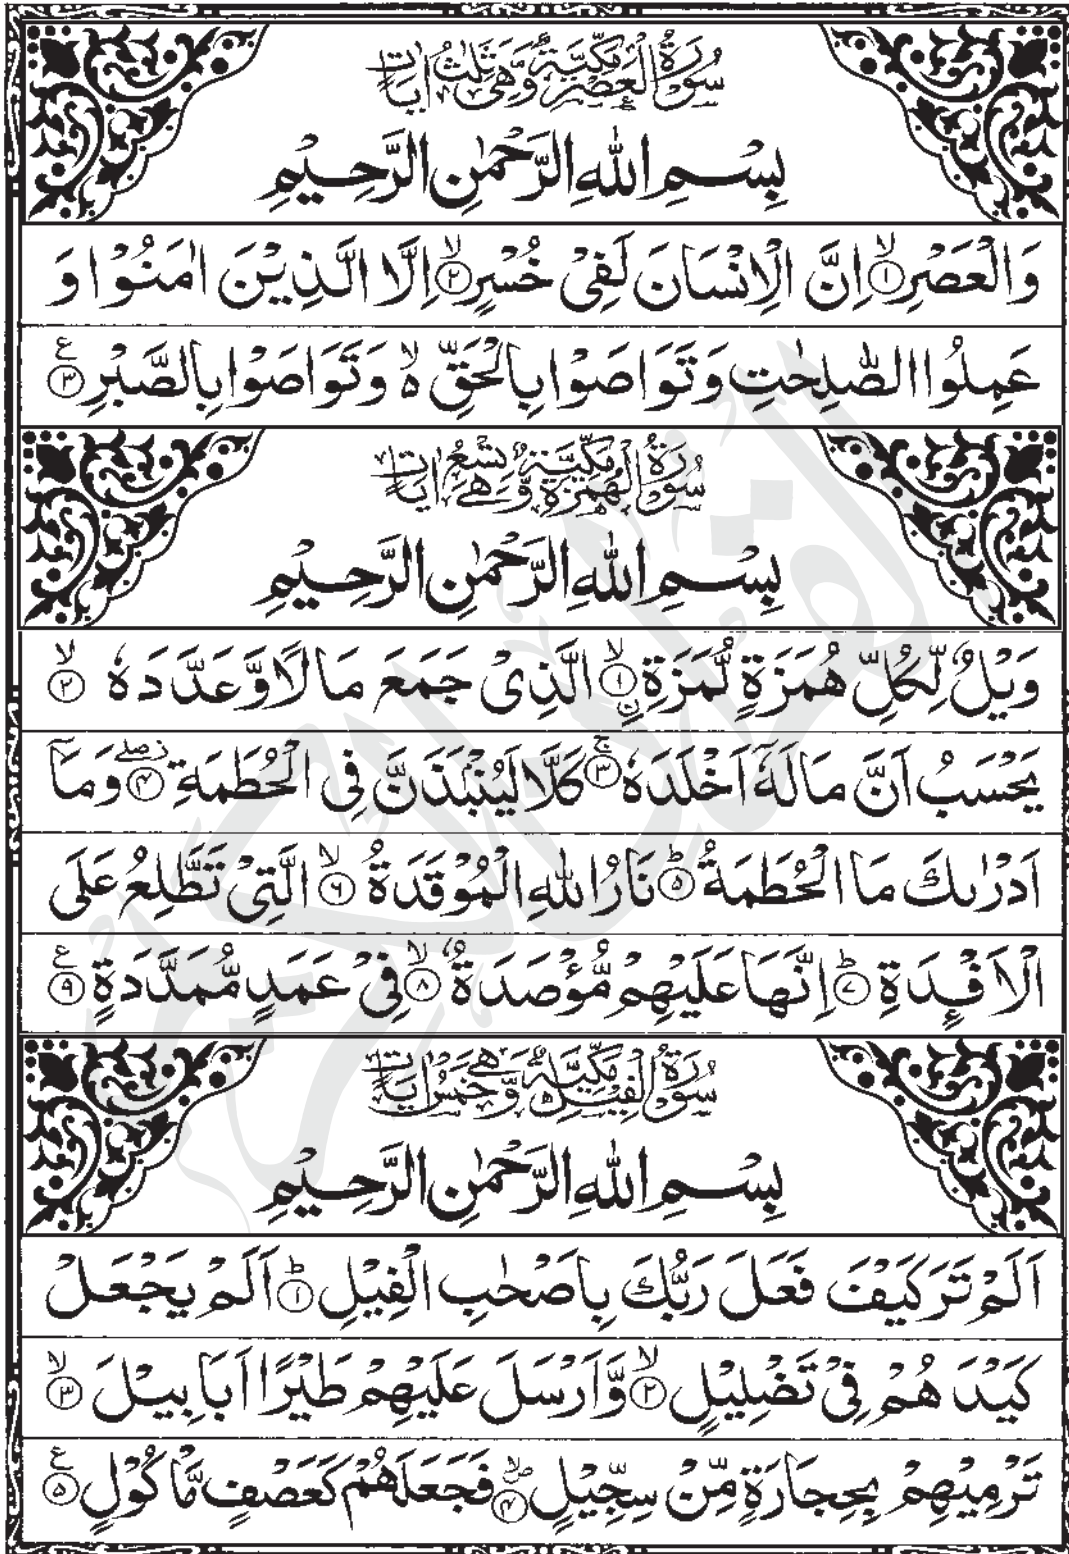 سُوْرَةُ الْعَصْرِ مَكِّيَّةٌ وَّهِيَ ثَلٰثُ اٰيَاتٍ
بِسْمِ اللّٰهِ الرَّحْمٰنِ الرَّحِيْمِ
وَالْعَصْرِ ۙ﴿۱﴾ اِنَّ الْاِنْسَانَ لَفِيْ خُسْرٍ ۙ﴿۲﴾ اِلَّا الَّذِيْنَ اٰمَنُوْا وَ
عَمِلُوا الصّٰلِحٰتِ وَتَوَاصَوْا بِالْحَقِّ ۙ۬ وَتَوَاصَوْا بِالصَّبْرِ ﴿۳﴾ ع
سُوْرَةُ الْهُمَزَةِ مَكِّيَّةٌ وَّهِيَ تِسْعُ اٰيَاتٍ
بِسْمِ اللّٰهِ الرَّحْمٰنِ الرَّحِيْمِ
وَيْلٌ لِّكُلِّ هُمَزَةٍ لُّمَزَةٍ ۙ﴿۱﴾ ن الَّذِيْ جَمَعَ مَالًا وَّعَدَّدَهٗ ۙ﴿۲﴾
يَحْسَبُ اَنَّ مَالَهٗٓ اَخْلَدَهٗ ۚ﴿۳﴾ كَلَّا لَيُنْۢبَذَنَّ فِي الْحُطَمَةِ ۖ﴿۴﴾ وَمَآ
اَدْرٰىكَ مَا الْحُطَمَةُ ؕ﴿۵﴾ نَارُ اللّٰهِ الْمُوْقَدَةُ ۙ﴿۶﴾ الَّتِيْ تَطَّلِعُ عَلَى
الْاَفْـِٕدَةِ ؕ﴿۷﴾ اِنَّهَا عَلَيْهِمْ مُّؤْصَدَةٌ ۙ﴿۸﴾ فِيْ عَمَدٍ مُّمَدَّدَةٍ ﴿۹﴾ ع
سُوْرَةُ الْفِيْلِ مَكِّيَّةٌ وَّهِيَ خَمْسُ اٰيَاتٍ
بِسْمِ اللّٰهِ الرَّحْمٰنِ الرَّحِيْمِ
اَلَمْ تَرَ كَيْفَ فَعَلَ رَبُّكَ بِاَصْحٰبِ الْفِيْلِ ؕ﴿۱﴾ اَلَمْ يَجْعَلْ
كَيْدَهُمْ فِيْ تَضْلِيْلٍ ۙ﴿۲﴾ وَّاَرْسَلَ عَلَيْهِمْ طَيْرًا اَبَابِيْلَ ۙ﴿۳﴾
تَرْمِيْهِمْ بِحِجَارَةٍ مِّنْ سِجِّيْلٍ ۪ۙ﴿۴﴾ فَجَعَلَهُمْ كَعَصْفٍ مَّاْكُوْلٍ ﴿۵﴾ ع